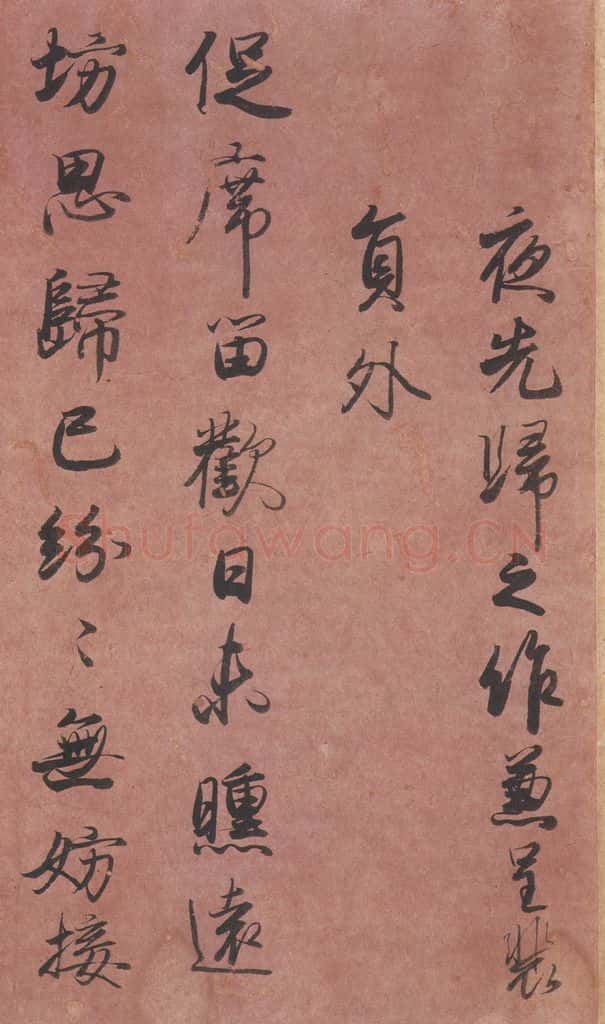 夜先歸之作兼呈裴
負外
促席留歡日未曛遠
坊思歸已紛〻無妨接
Shufawang.CN